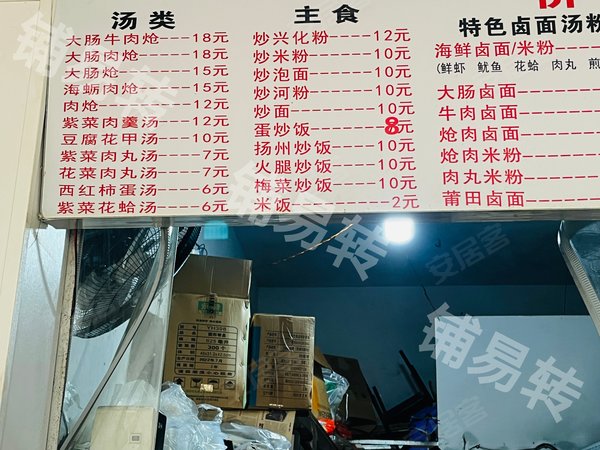 汤类
大肠牛肉炝----18元
大肠肉炝----18元
大肠炝-----15元
海蛎肉炝----15元
肉炝------12元
紫菜肉羹汤---12元
豆腐花甲汤---10元
紫菜肉丸汤----7元
花菜肉丸汤----7元
西红柿蛋汤----6元
紫菜花蛤汤----6元
主食
炒兴化粉----12元
炒米粉-----10元
炒泡面-----10元
炒河粉-----10元
炒面------10元
蛋炒饭-----8元
扬州炒饭----10元
火腿炒饭----10元
梅菜炒饭----10元
米饭-------2元
特色卤面汤粉
海鲜卤面/米粉
(鲜虾 鱿鱼 花蛤 肉丸 煎
大肠卤面
牛肉卤面
炝肉卤面
炝肉米粉
肉丸米粉
莆田卤面
铺易转
铺易转
铺易转
铺易转
铺易转
安居客
安居客